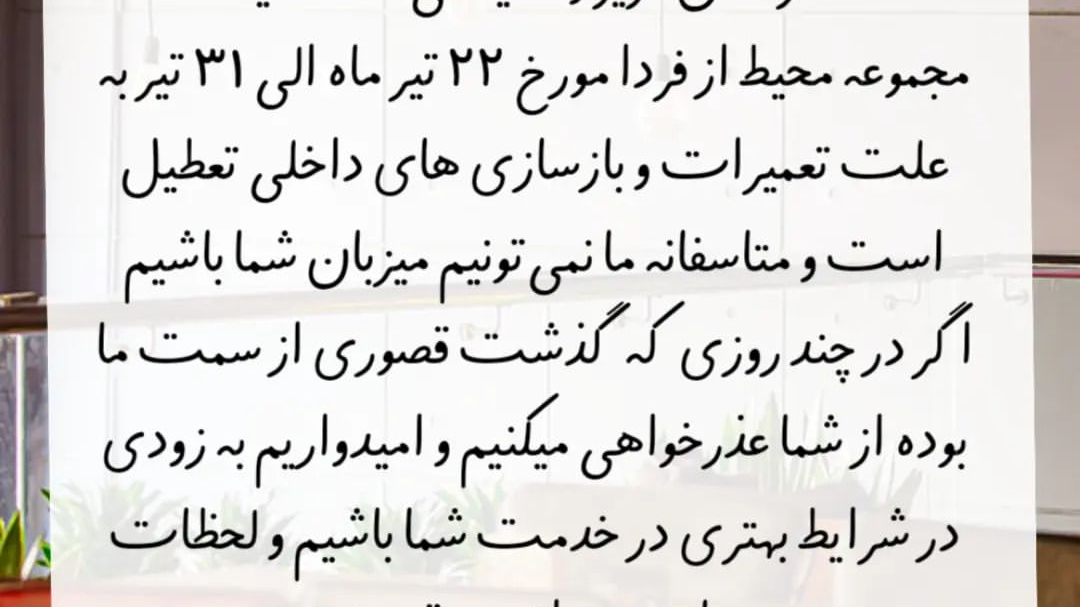 مجموعه محیط از فردا مورخ ۲۲ تیر ماه الی ۳۱ تیر به
علت تعمیرات و بازسازی های داخلی تعطیل
است و متاسفانه ما نمی تونیم میزبان شما باشیم
اگر در چند روزی که گذشت قصوری از سمت ما
بوده از شما عذرخواهی میکنیم و امیدواریم به زودی
در شرایط بهتری در خدمت شما باشیم و لحظات